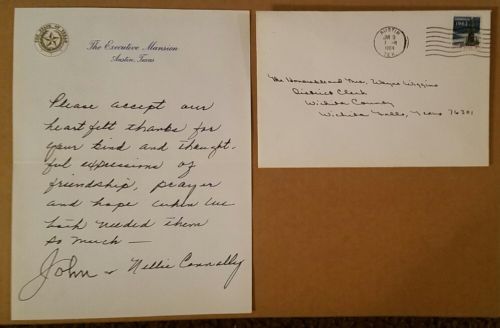 THE STATE OF TEXAS
The Executive Mansion
Austin, Texas
Please accept our
heartfelt thanks for
your kind and thought-
ful expressions of
friendship, prayer
and hope when we
both needed them
so much —
John & Nellie Connally
AUSTIN
JAN 9
PM
1964
TEX.
The Honorable and Mrs. Wayne Wiggins
District Clerk
Wichita County
Wichita Falls, Texas 76301